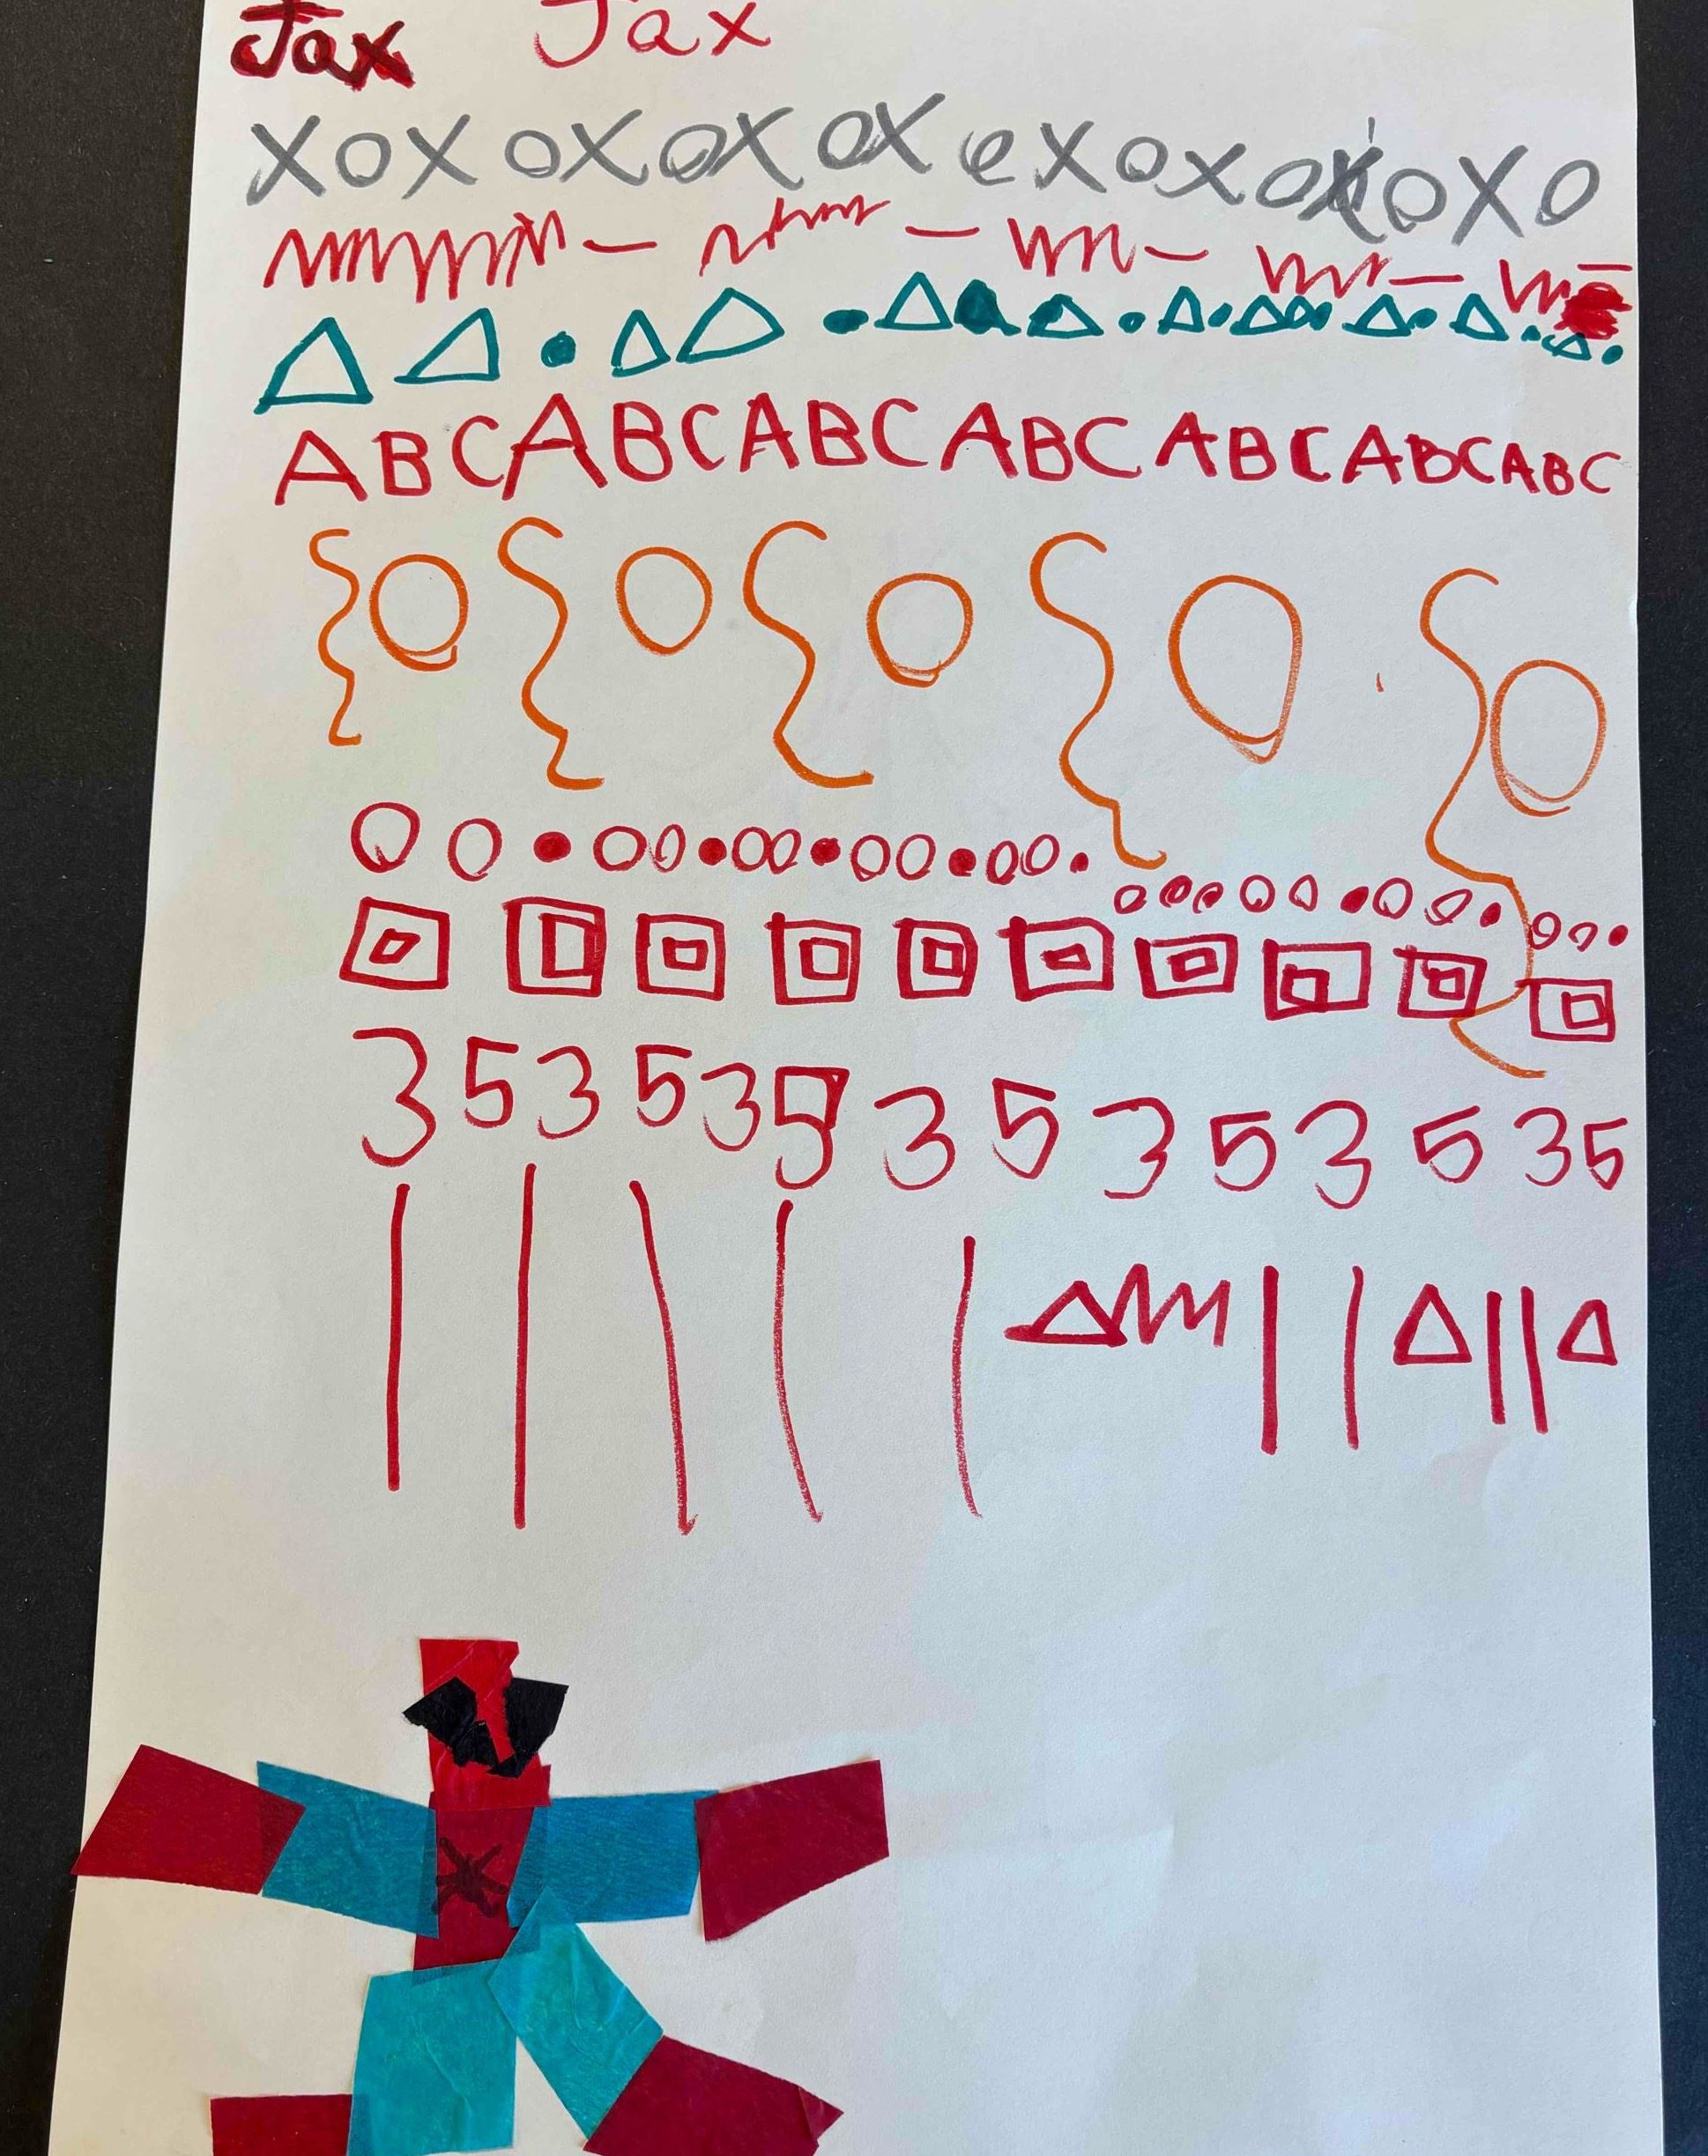 Jax Jax
XOXOXOXOXOXOXOXOXO
ABCABCABCABCABCABCABC
35353535353535